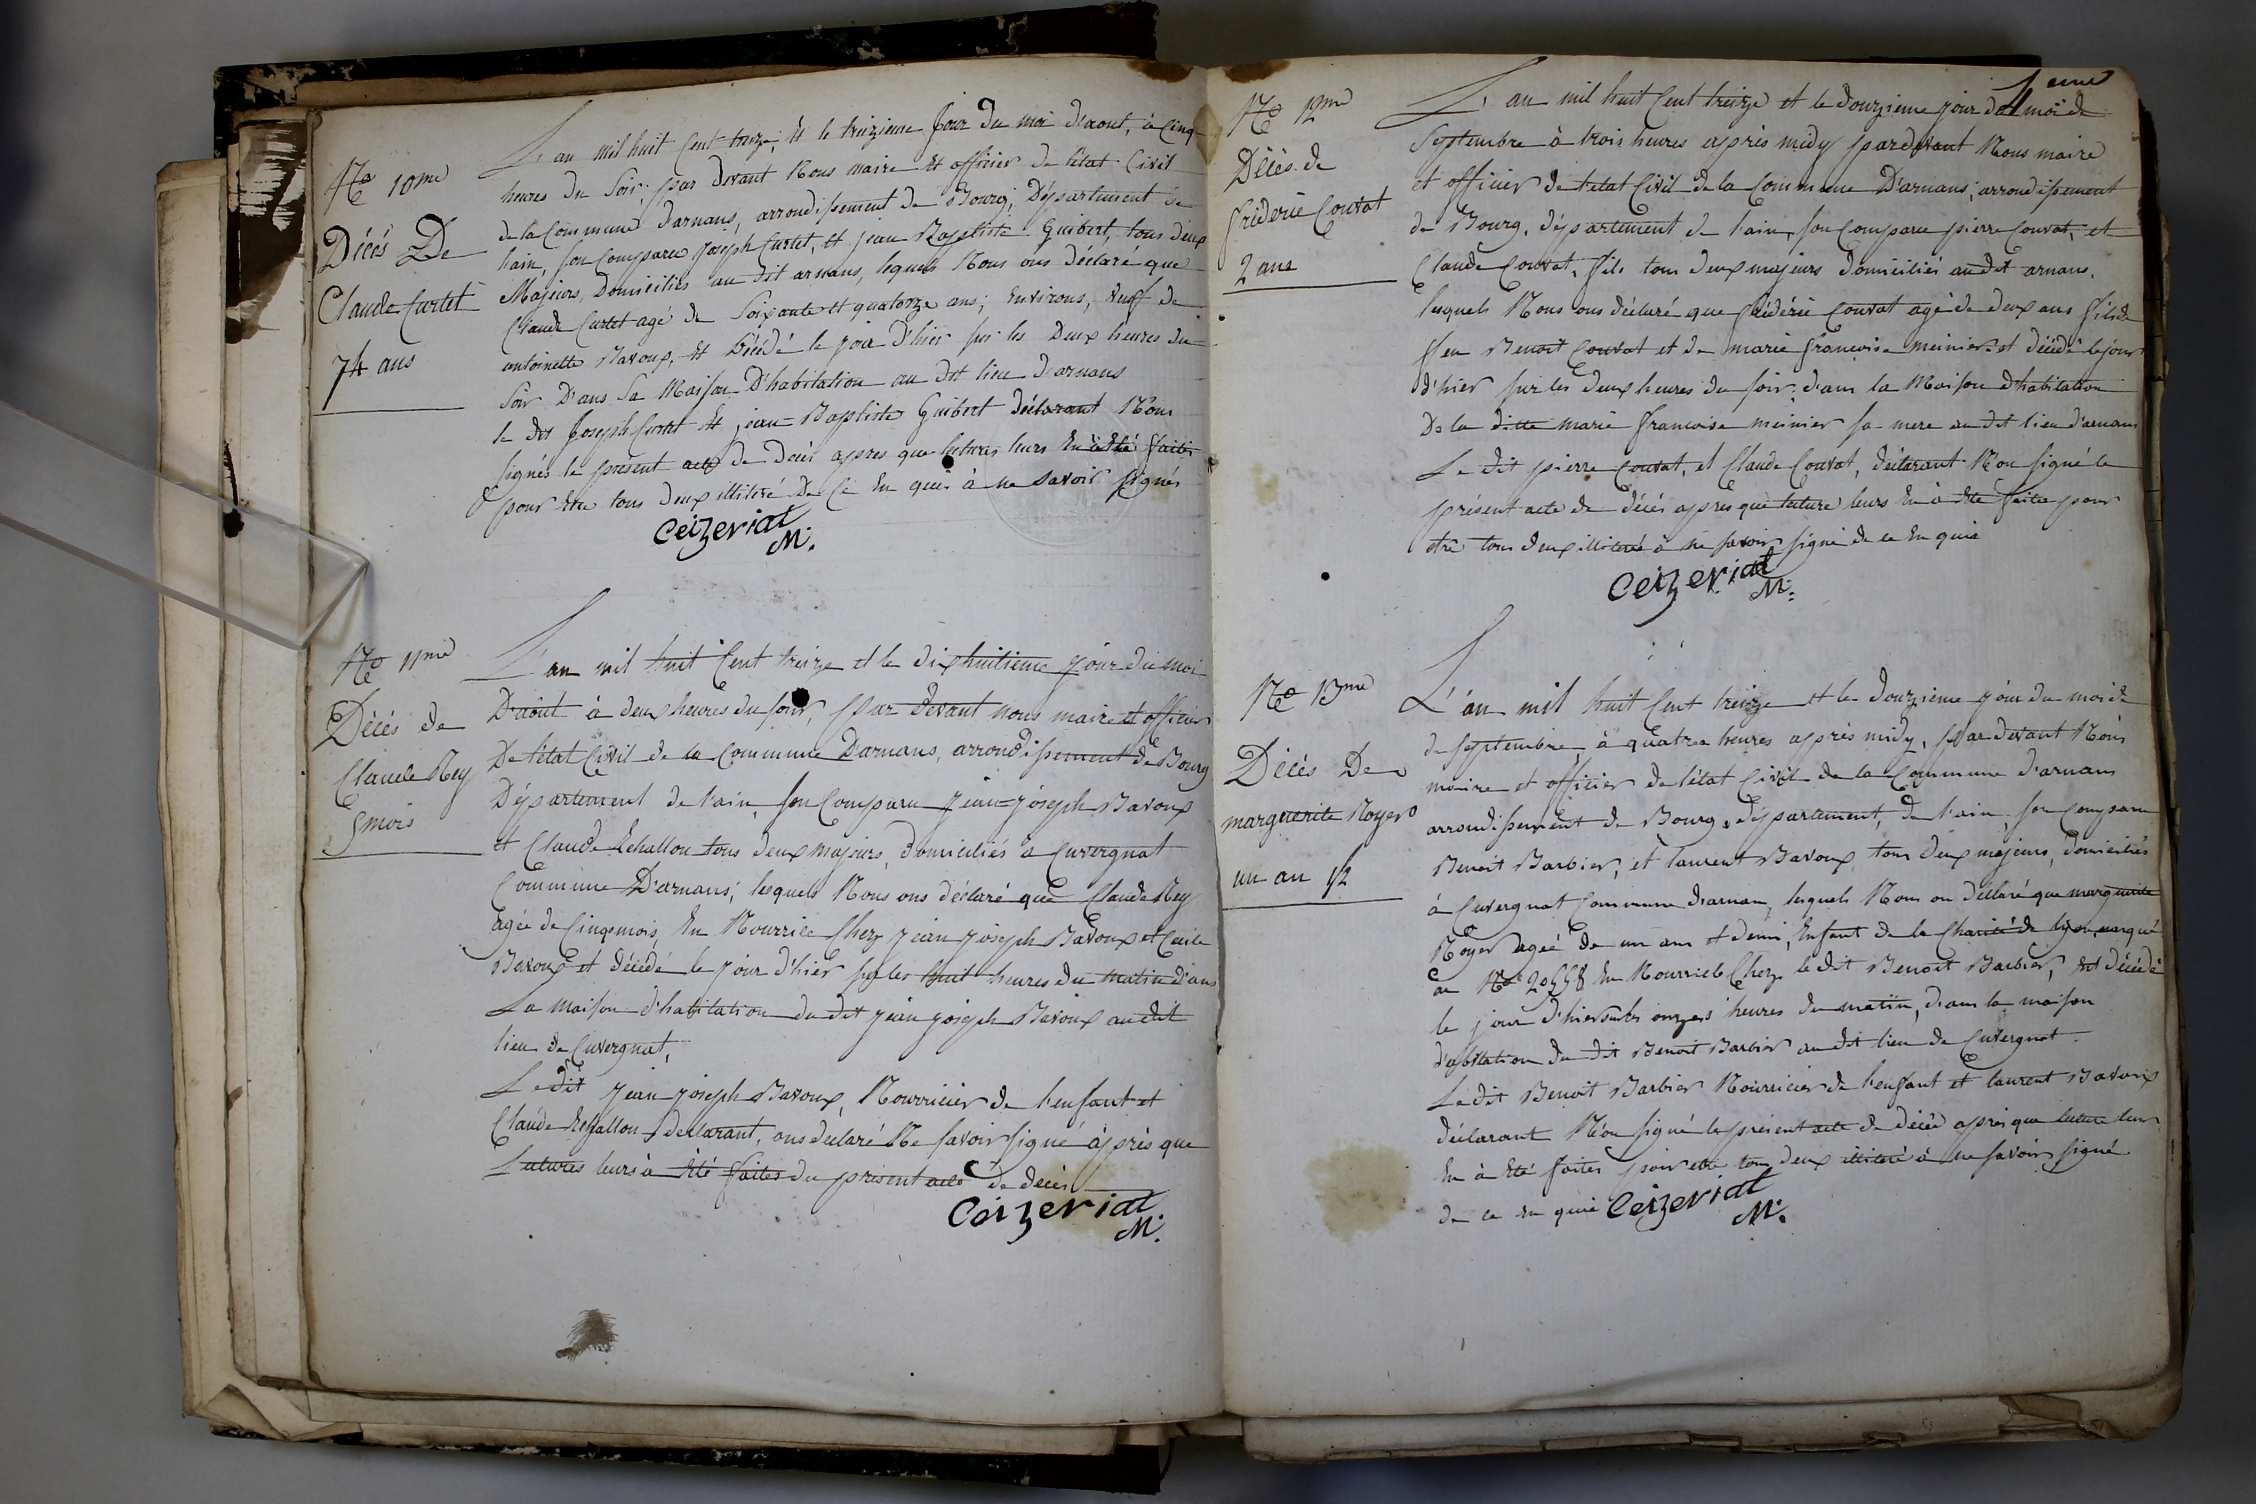 No 10me
Décés De
Claude Curtet
74 ans
L'an mil huit Cent treize, et le treizieme Jour du moi d'aout, à Cinq
heures du Soir, par devant Nous maire et officier de l'état Civil
de la Commune d'arnans, arrondissement de Bourg, Département de
lain, son Comparu Joseph Curtet, et jean Baptiste Guibert, tous deux
Majeurs, Domiciliés au dit arnans, lequels Nous ons déclare que
Claude Curtet agé de Soixante et quatorze ans, Environs, veuf de
antoinette Bavoux, et Décédé le jour D'hier sur les Deux heures du
Soir D'ans Sa Maison D'habitation au dit lieu d'arnans
le dit Joseph Curtet et jean-Baptiste Guibert déclarant N'on
signés le présent acte de Décés apres que lutures leurs En à été faites
pour Etre tous Deux illitéré De Ce En quis à ne Savoir signés
Ceizeriat
M.
No 11me
Décés de
Claude Rey
5 mois
L'an mil huit Cent treize et le dix huitieme jour du moi
D'août à deux heures du soir, par devant nous maire et officier
De l'état Civil de la Commune D'arnans, arrondissement de Bourg
Département de l'ain, son Comparu jean-joseph Bavoux
et Claude Echallon tous deux majeurs, domiciliés à Cuvergnat
Commune D'arnans, lesquels Nous ons déclaré que Claude Rey
agée de Cinq mois, En Nourrice Chez jean joseph Bavoux et Cecile
Bavoux et décédé le jour d'hier sur les huit heures du matin d'ans
La maison d'habitation du dit jean joseph Bavoux au dit
lieu de Cuvergnat,
Le dit jean joseph Bavoux, Nourricier de l'enfant et
Claude Echallon, declarant, ons declaré Ne savoir signé àprès que
Lutures leurs à été faites du présent acte de décés
Ceizeriat
M.
4eme
No 12me
Décés de
frideric Couvat
2 ans
L'an mil huit Cent treize et le douzieme jour du moi de
Septembre à trois heures après midy par devant Nous maire
et officier de l'etat Civil de la Commune D'arnans, arrondissement
de Bourg, département de l'ain, son Comparu pierre Couvat, et
Claude Couvat, fils tous deux majeurs domiciliés au dit arnans,
lesquels Nous ons déclaré que fridéric Couvat agé de deux ans fils de
feu Benoit Couvat et de marie francoise meinier et décédé le jour
d'hier sur les deux heures du soir, d'ans la Maison d'habitation
De la ditte marie francoise meinier sa mere au dit lieu d'arnans
Le dit pierre Couvat, et Claude Couvat, déclarant N'on signé le
présent acte de décés apres que luture leurs En à été faite pour
etre tous deux illiteré à ne savoir signé de ce En quis
Ceizeriat
M.
No 13me
Décés De
marguerite Royer
un an 1/2
L'an mil huit Cent treize et le douzieme jour du mois de
de septembre, à quatre heures après midy, par devant Nous
maire et officier de l'état Civil de la Commune d'arnans
arrondissement de Bourg, département, de l'ain son Comparu
Benoit Barbier, et laurent Bavoux tous deux majeurs, domiciliés
à Cuvergnat Commune d'arnans, lesquels Nous on déclaré que marguerite
Royer ageé de un ans et demi, Enfant de la Charité de lyon, marqué
au No 20558 En Nourrice Chez le dit Benoit Barbier, est décédé
le jour d'hier sur les onzes heures du matin, d'ans la maison
d'abitation du dit Benoit Barbier au dit lieu de Cuvergnat.
Le dit Benoit Barbier Nourricier de l'enfant et laurent Bavoux
déclarant N'on signé le présent acte de décés après que luture leur
En à été faites pour etre tous deux illiteré à ne savoir signé
de ce En quis Ceizeriat
M.